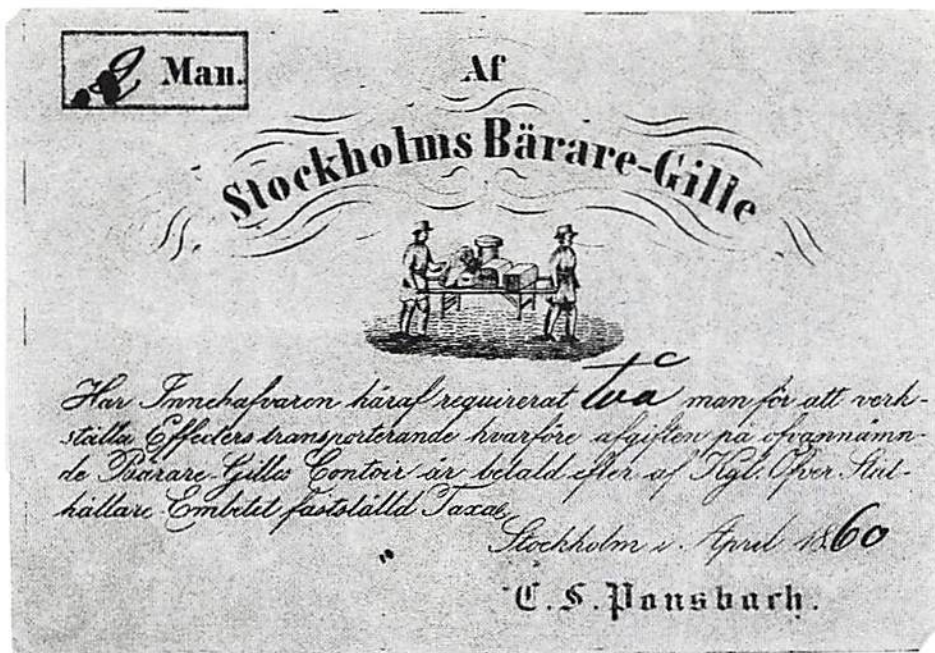 2 Man.
Af
Stockholms Bärare-Gille
Har Innehafvaren häraf requirerat två man för att verk-
ställa Effecters transporterande hvarföre afgiften på ofvannämn-
de Bärare-Gilles Contoir är betald efter af Kgl. Öfver Ståt-
hållare Embetet fastställd Taxa,
Stockholm i April 1860
C. S. Ponsbach.